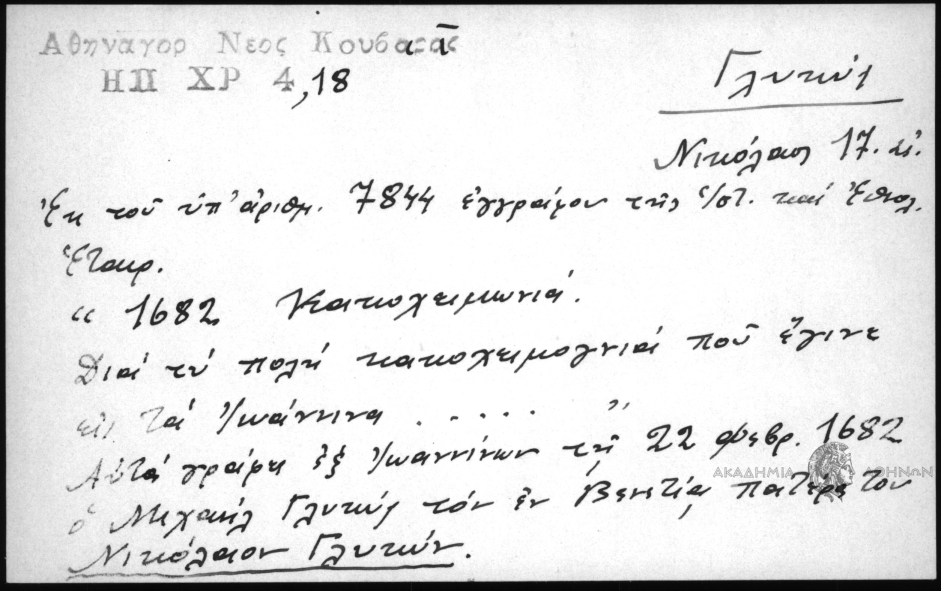 Αθηναγορ Νεος Κουβαρας
ΗΠ ΧΡ 4,18
Γλυκύς
Νικόλαος 17. αἰ.
Ἐκ τοῦ ὑπ' ἀριθμ. 7844 ἐγγράφου τῆς Ἱστ. καί Ἐθνολ.
Ἑταιρ.
“ 1682 Κακοχειμωνιά.
Διά τύ πολή κακοχειμογνιά ποῦ ἔγινε
εἰς τά Ἰωάννινα . . . . . "
Αὐτά γράφει ἐξ Ἰωαννίνων τῇ 22 φεβρ. 1682
ΑΚΑΔΗΜΙΑ ΑΘΗΝΩΝ
ὁ Μιχαήλ Γλυκύς τόν ἐν Βενετίᾳ πατέρα του
Νικόλαον Γλυκύν.